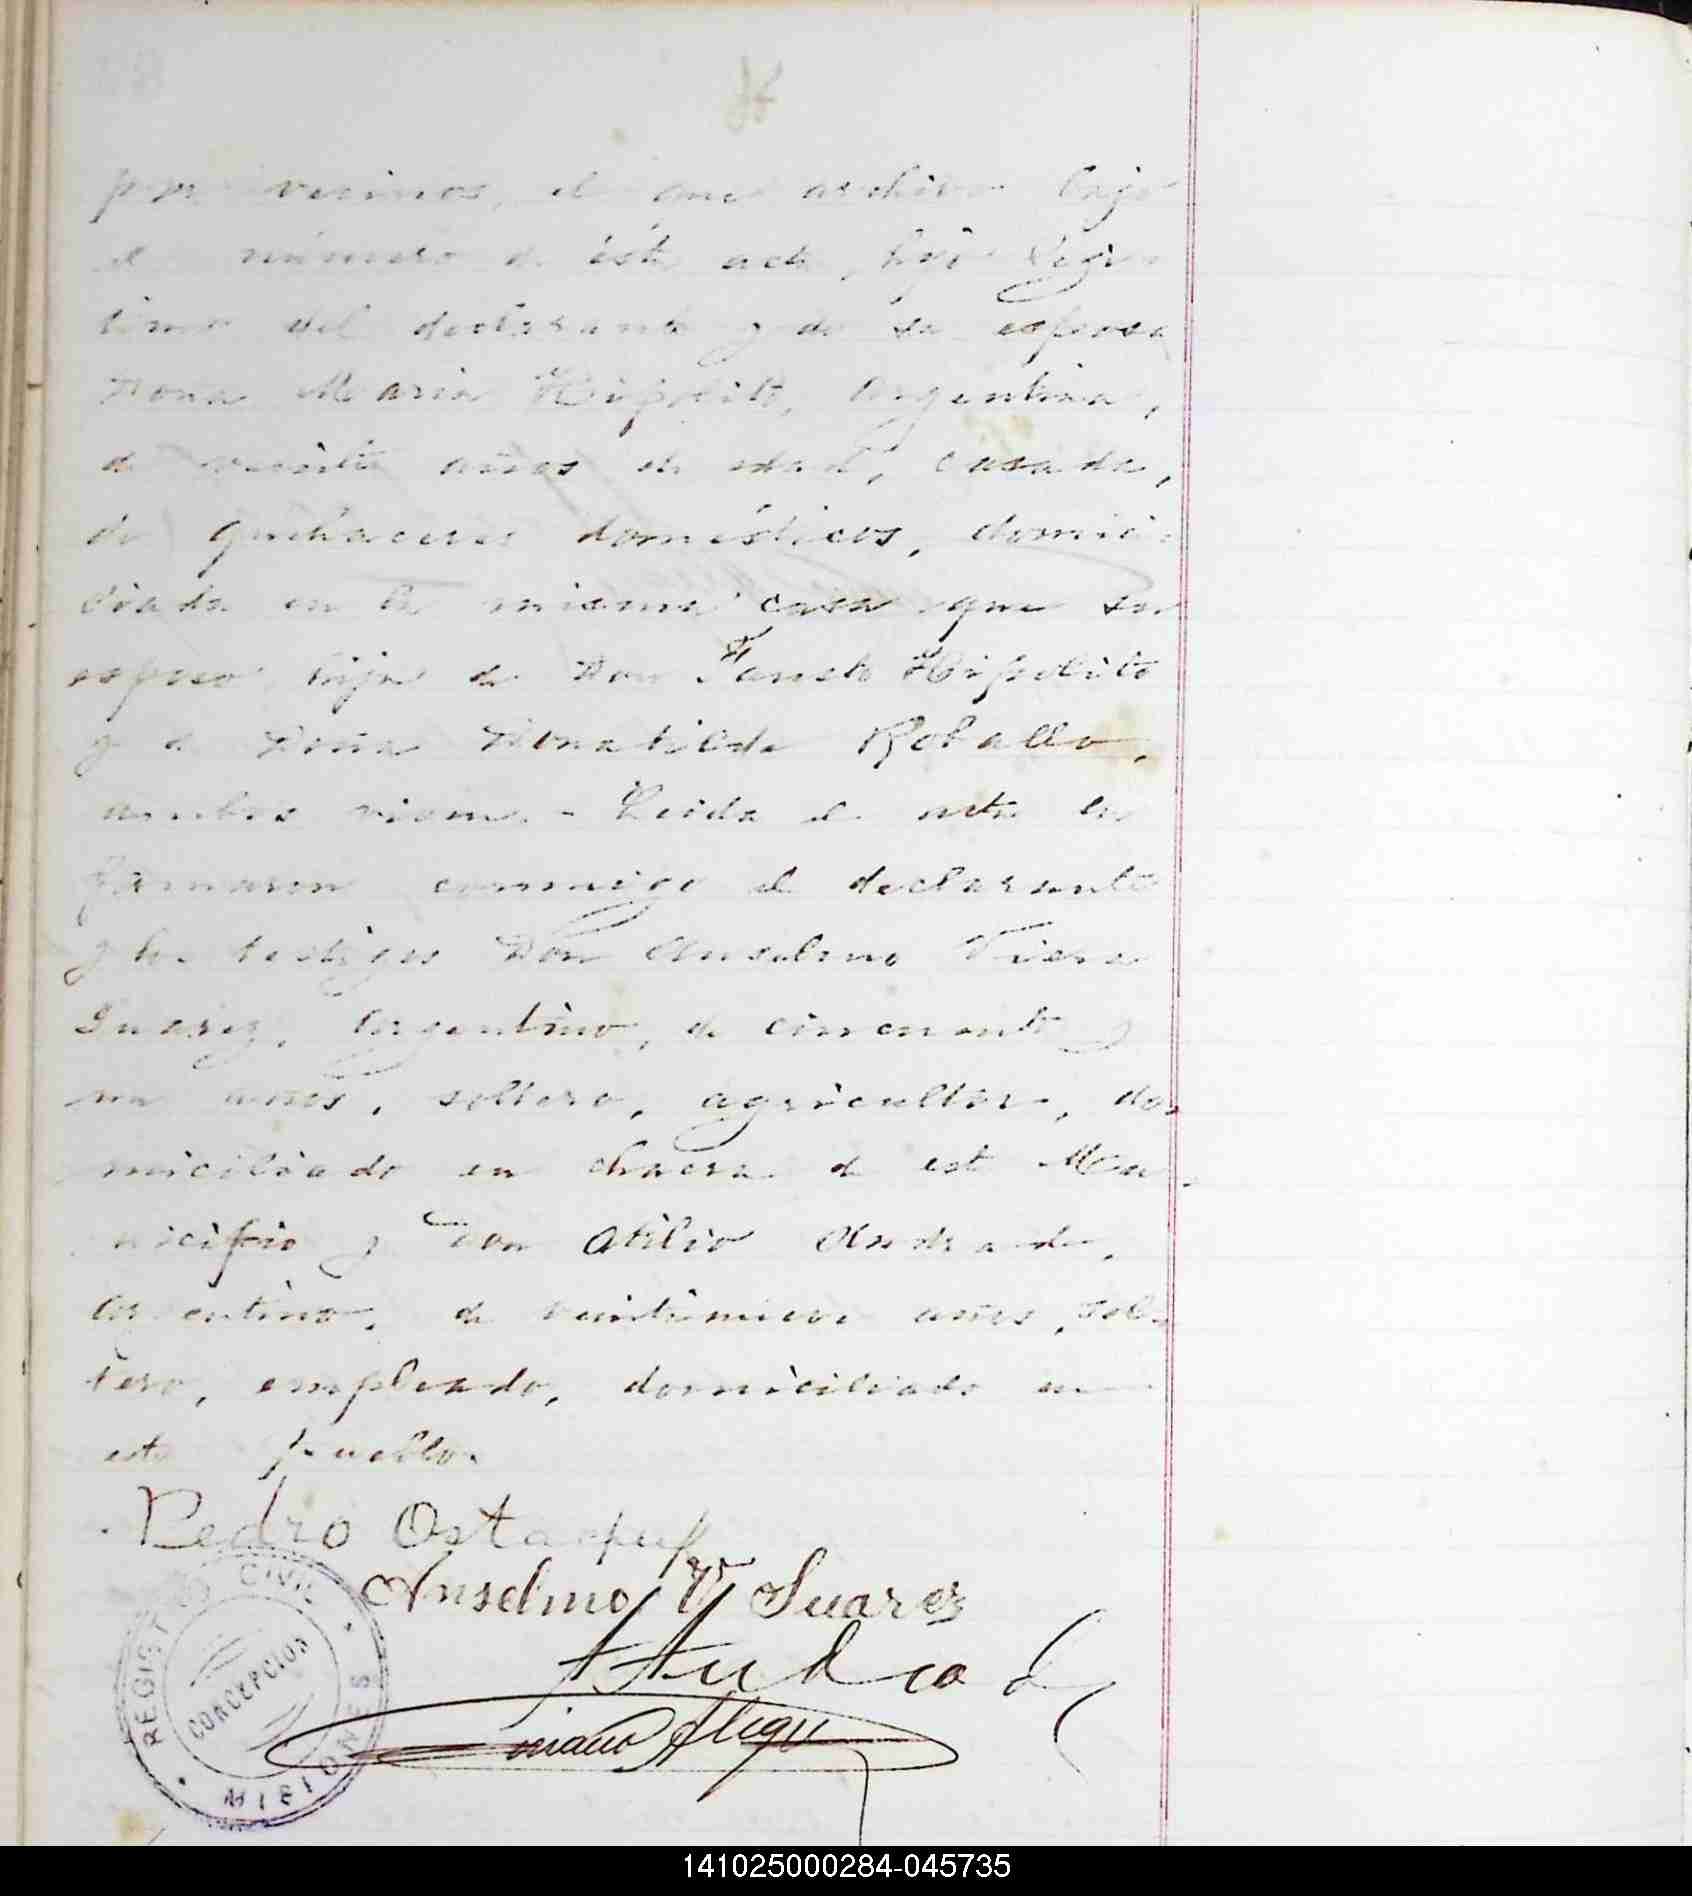 por vecinos, el que archivo bajo
el número de ésta acta, hijo legi-
timo del declarante y de su esposa
Dona Maria Hipolito, Argentina,
de veinte años de edad, casada,
de quehaceres domésticos, domici-
liada en la misma casa que su
esposo, hija de Don Fausto Hipolito
y de Dona Donatilda Roballo,
ambos viven.- Leida el acta la
firmaron conmigo el declarante
y los testigos Don Anselmo Viera
Suarez, Argentino, de cincuenta y
un años, soltero, agricultor, do-
miciliado en chacra de este Mu-
nicipio y Don Atilio Andrade,
Argentino, de veintinueve años, sol-
tero, empleado, domiciliado en
este pueblo.
Pedro
Anselmo V Suarez
A Andrade
Alegre
REGISTRO CIVIL
CONCEPCION
MISIONES
141025000284-045735